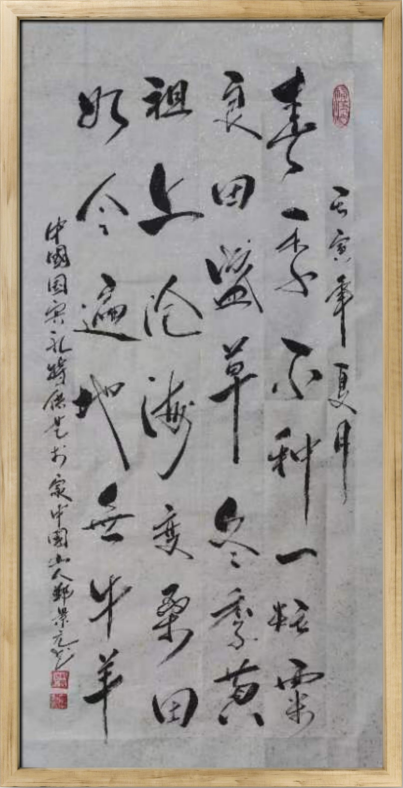 壬寅年夏月
春季不种一粒粟
良田盛草冬季黄
祖上沧海变桑田
如今遍地無牛羊
中國国宾礼特供艺术家中国山人郑景元书